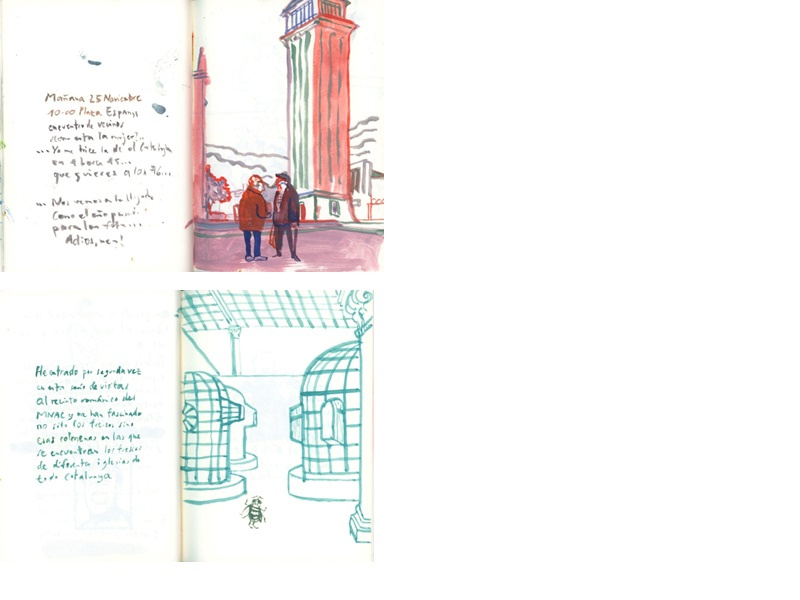 Mañana 25 Noviembre
10:00 Plaza Espanya
encuentro de vecinos
como esta la mujer?..
... Yo me hice la de el Catalejo
en 1 hora 45...
que quieres a los 76...
... Nos vemos a la llegada
Como el año pasado
para la foto...
Adios, nen!
He entrado por segunda vez
en esta serie de visitas
al recinto románico del
MNAC y me han fascinado
no sólo los frescos sino
las
se encuentran los frescos
de diferentes iglesias de
todo Catalunya